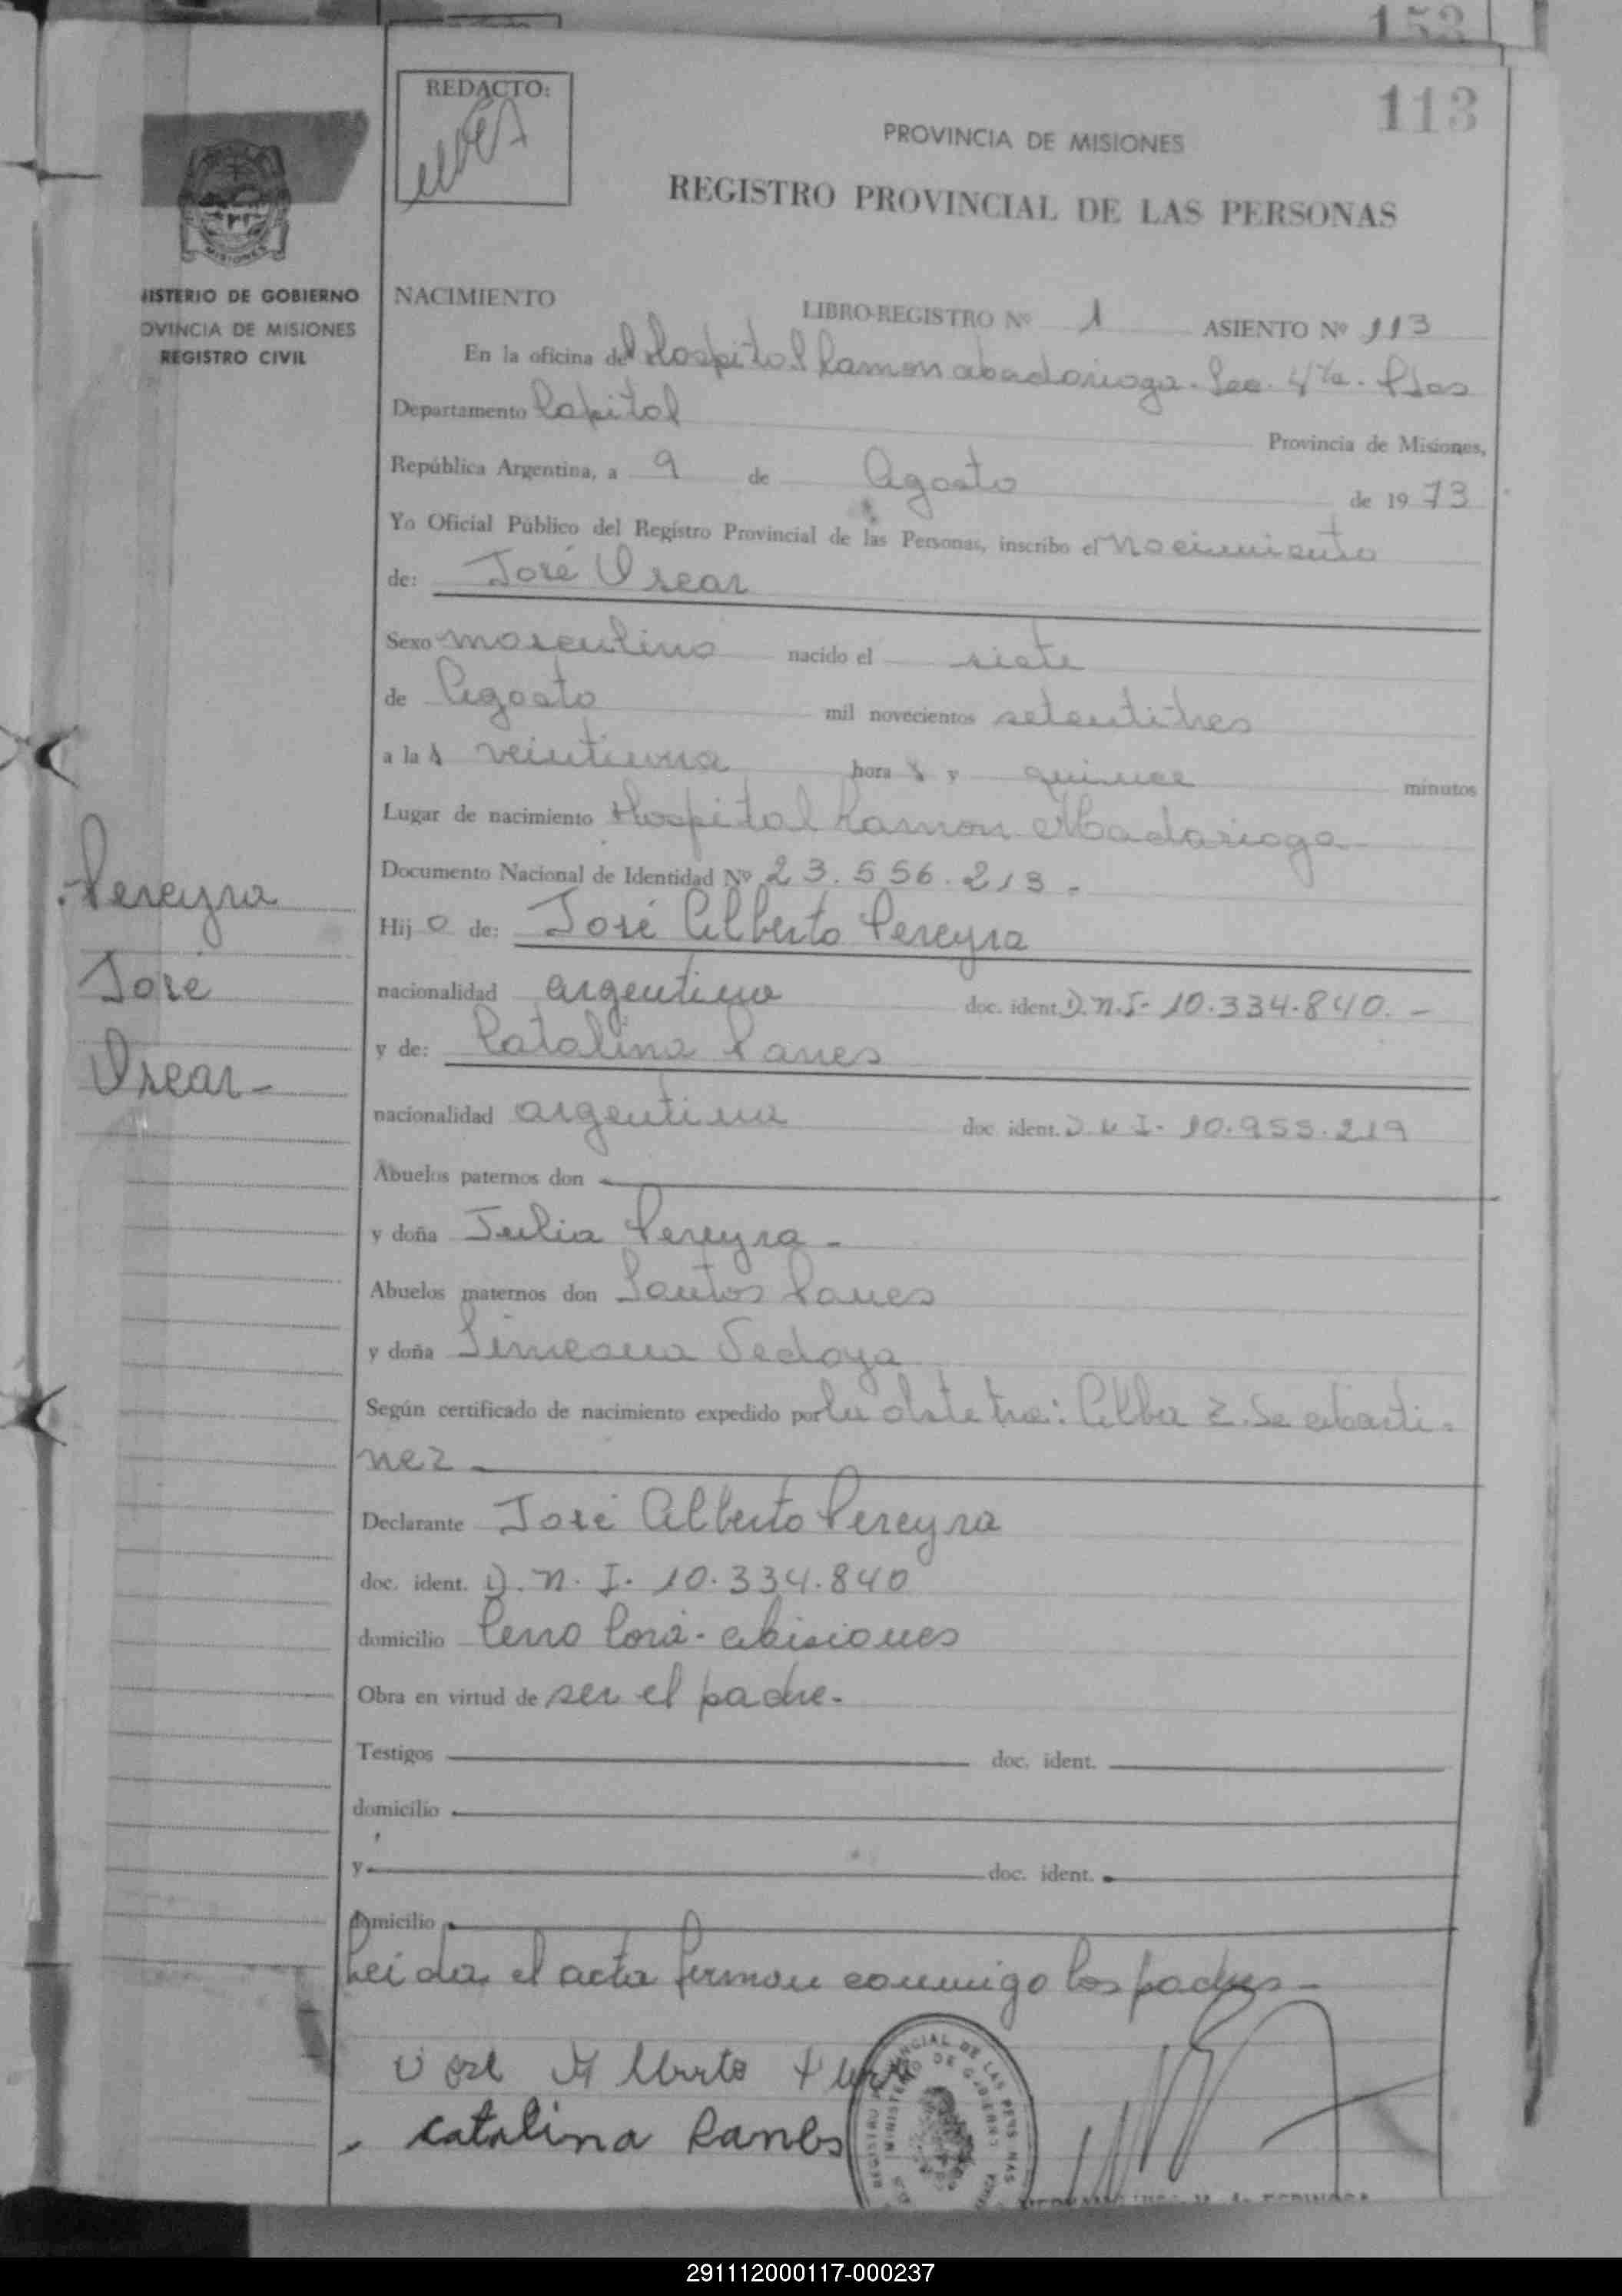 152
113
REDACTO:
PROVINCIA DE MISIONES
REGISTRO PROVINCIAL DE LAS PERSONAS
MISIONES
NISTERIO DE GOBIERNO
OVINCIA DE MISIONES
REGISTRO CIVIL
NACIMIENTO
LIBRO-REGISTRO Nº 1 ASIENTO Nº 113
En la oficina del Hospital Ramon Madariaga. Sec. 4ta. Pdas
Departamento Capital
Provincia de Misiones,
República Argentina, a 9 de Agosto de 1973
Yo Oficial Público del Registro Provincial de las Personas, inscribo el Nacimiento
de: José Oscar
Sexo masculino nacido el siete
de Agosto mil novecientos setentitres
a las veintiuna horas y quince minutos
Lugar de nacimiento Hospital Ramon Madariaga
Documento Nacional de Identidad Nº 23.556.213.-
Pereyra
Hijo de: José Alberto Pereyra
José
nacionalidad argentina doc. ident. D.N.I- 10.334.840.-
y de: Catalina Panes
Oscar-
nacionalidad argentina doc. ident. D.N.I- 10.955.219
Abuelos paternos don
y doña Julia Pereyra-
Abuelos maternos don Santos Panes
y doña Simeona Sedoya
Según certificado de nacimiento expedido por la obstetra: Alba Z. de Marti-
nez
Declarante José Alberto Pereyra
doc. ident. D.N.I. 10.334.840
domicilio Cerro Corá- Misiones
Obra en virtud de ser el padre-
Testigos doc. ident.
domicilio
y doc. ident.
domicilio
Leida el acta firman conmigo los padres-
José Alberto
Catalina Panes
REGISTRO PROVINCIAL DE LAS PERSONAS
MINISTERIO DE GOBIERNO
291112000117-000237